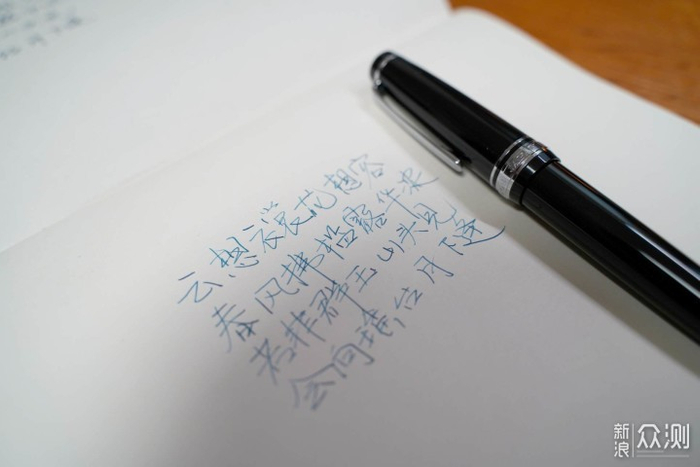 云想衣裳花想容
春风拂槛露华浓
若非群玉山头见
会向瑶台月下逢
新浪众测